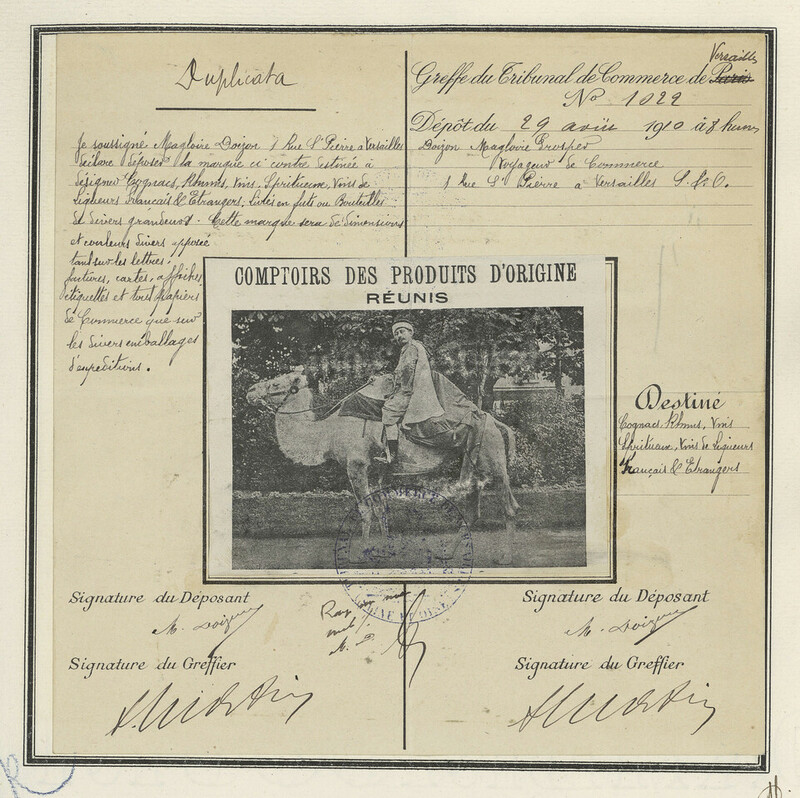 Duplicata
Je soussigné Magloire Doizon 1 Rue St Pierre a Versailles
déclare déposer la marque ci contre destinée à
désigner Cognacs, Rhums, Vins, Spiritueux, Vins de
Liqueurs Français & Etrangers, livrés en futs ou Bouteilles
de divers grandeurs. Cette marque sera de dimensions
et couleurs divers apposée
tant sur les lettres,
factures, cartes, affiches,
étiquettes et tous papiers
de Commerce que sur
les divers emballages
d'expéditions.
Greffe du Tribunal de Commerce de Paris Versailles
No 1022
Dépôt du 29 août 1910 à 8 heures
Doizon Magloire Prosper
Voyageur de Commerce
1 Rue St Pierre a Versailles S. & O.
COMPTOIRS DES PRODUITS D'ORIGINE
RÉUNIS
Destiné
Cognacs, Rhums, Vins
Spiritueux, Vins de Liqueurs
Français & Etrangers
Signature du Déposant
M. Doizon
Signature du Greffier
Signature du Déposant
M. Doizon
Signature du Greffier